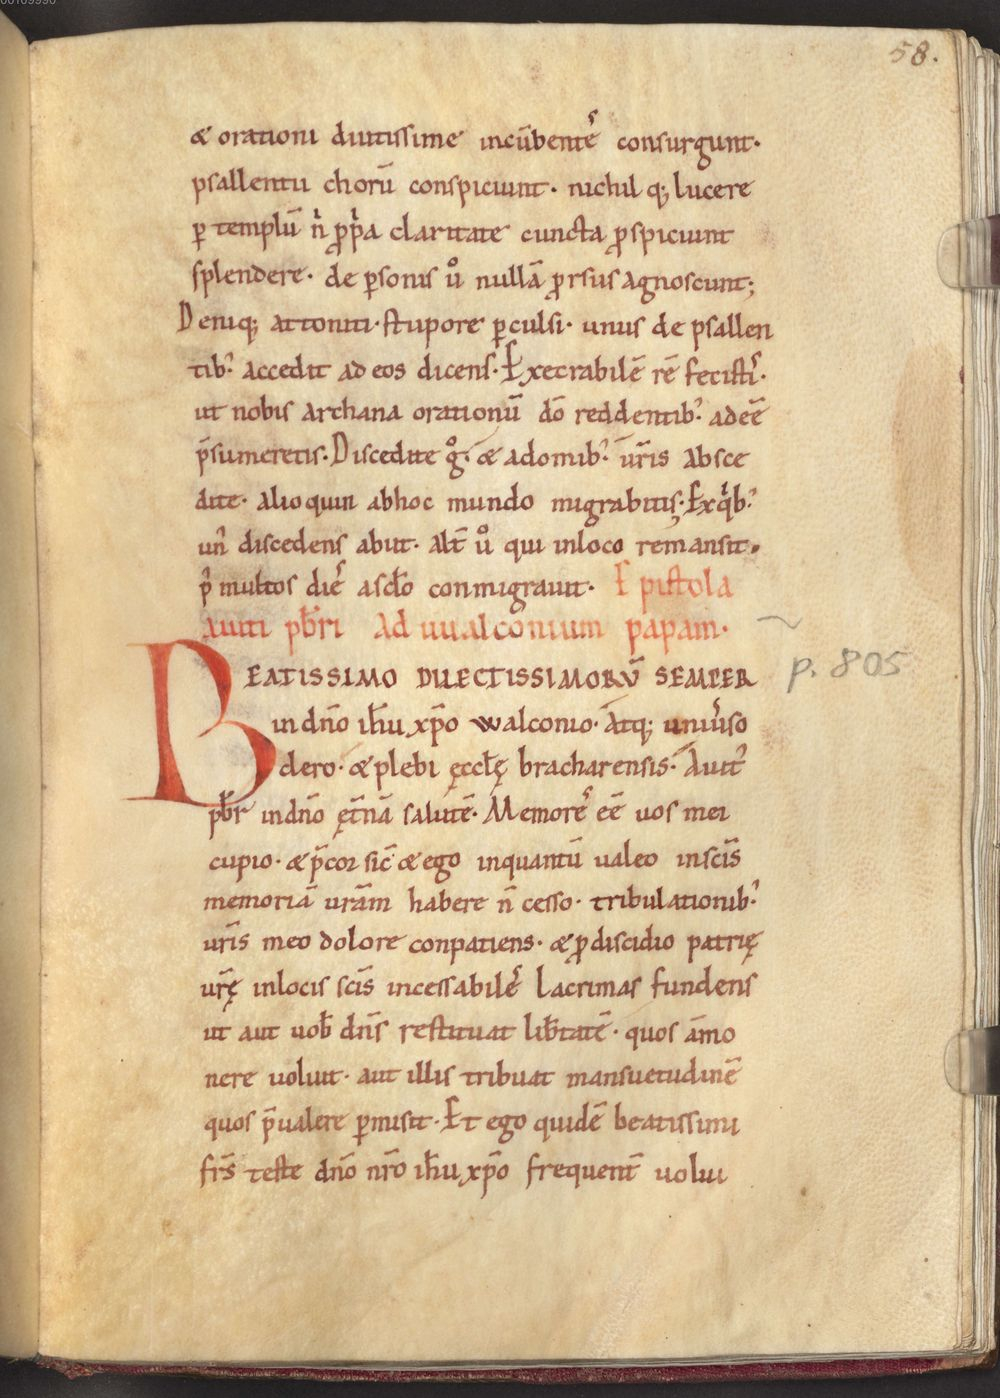 00109990
58.
& orationi diutissime incūbentes consurgunt·
psallentiū chorū conspiciunt· nichil q; lucere
ꝑ templū n̄ ꝓpͥa claritate cuncta ꝓspiciunt
splendere· de ꝑsonis uͦ nullā ꝓrsus agnoscunt;
Deniq; attoniti· stupore ꝑculsi· unus de psallen
tib; accedit ad eos dicens· Execrabilē rē fecistis·
ut nobis archana orationū dō reddentib; adeē
p̄sumeretis· Discedite gͦ· & adomib; ur̄is absce
dite· alioquin abhoc mundo migrabitis; Exqͥb;
un̄ discedens abiit· alt̄ uͦ qui inloco remansit·
p̄ multos dies asclo conmigrauit· Epistola
auiti pb̄ri Ad uualconium papam·
BEATISSIMO DILECTISSIMORŪ SEMPER
in dn̄o ih̄u xp̄o walconio· Atq; uniuerso
clero· & plebi ęccl̄ę bracharensis· Auit᷒
pb̄r indn̄o ęt̄nā salutē· Memores eē uos mei
cupio· & p̄cor sic̄ & ego inquantū ualeo insc̄is
memoriā ur̄am habere n̄ cesso· tribulationib;
ur̄is meo dolore conpatiens· & ꝓ discidio patrię
ur̄ę inlocis sc̄is incessabiles lacrimas fundens
ut aut uob̄ dn̄s restituat lib̄tatē· quos āmo
nere uoluit· aut illis tribuat mansuetudinē
quos p̄ualere ꝑmisit· Et ego quidē beatissimi
fr̄s teste dn̄o nr̄o ih̄u xp̄o frequent̄ uolui
p. 805